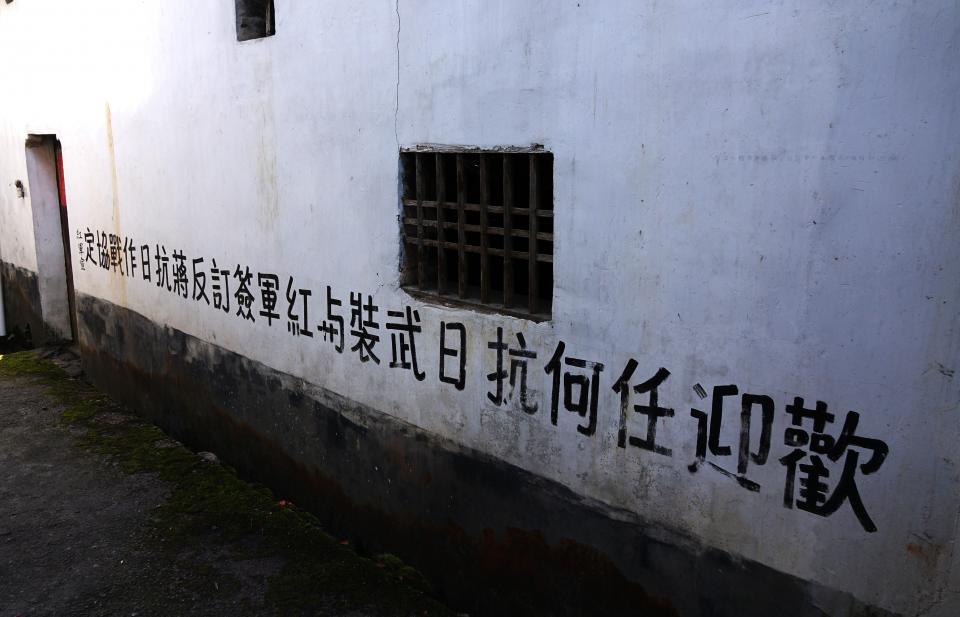 歡迎任何抗日武裝与紅軍簽訂反蔣抗日作戰協定
紅軍宣